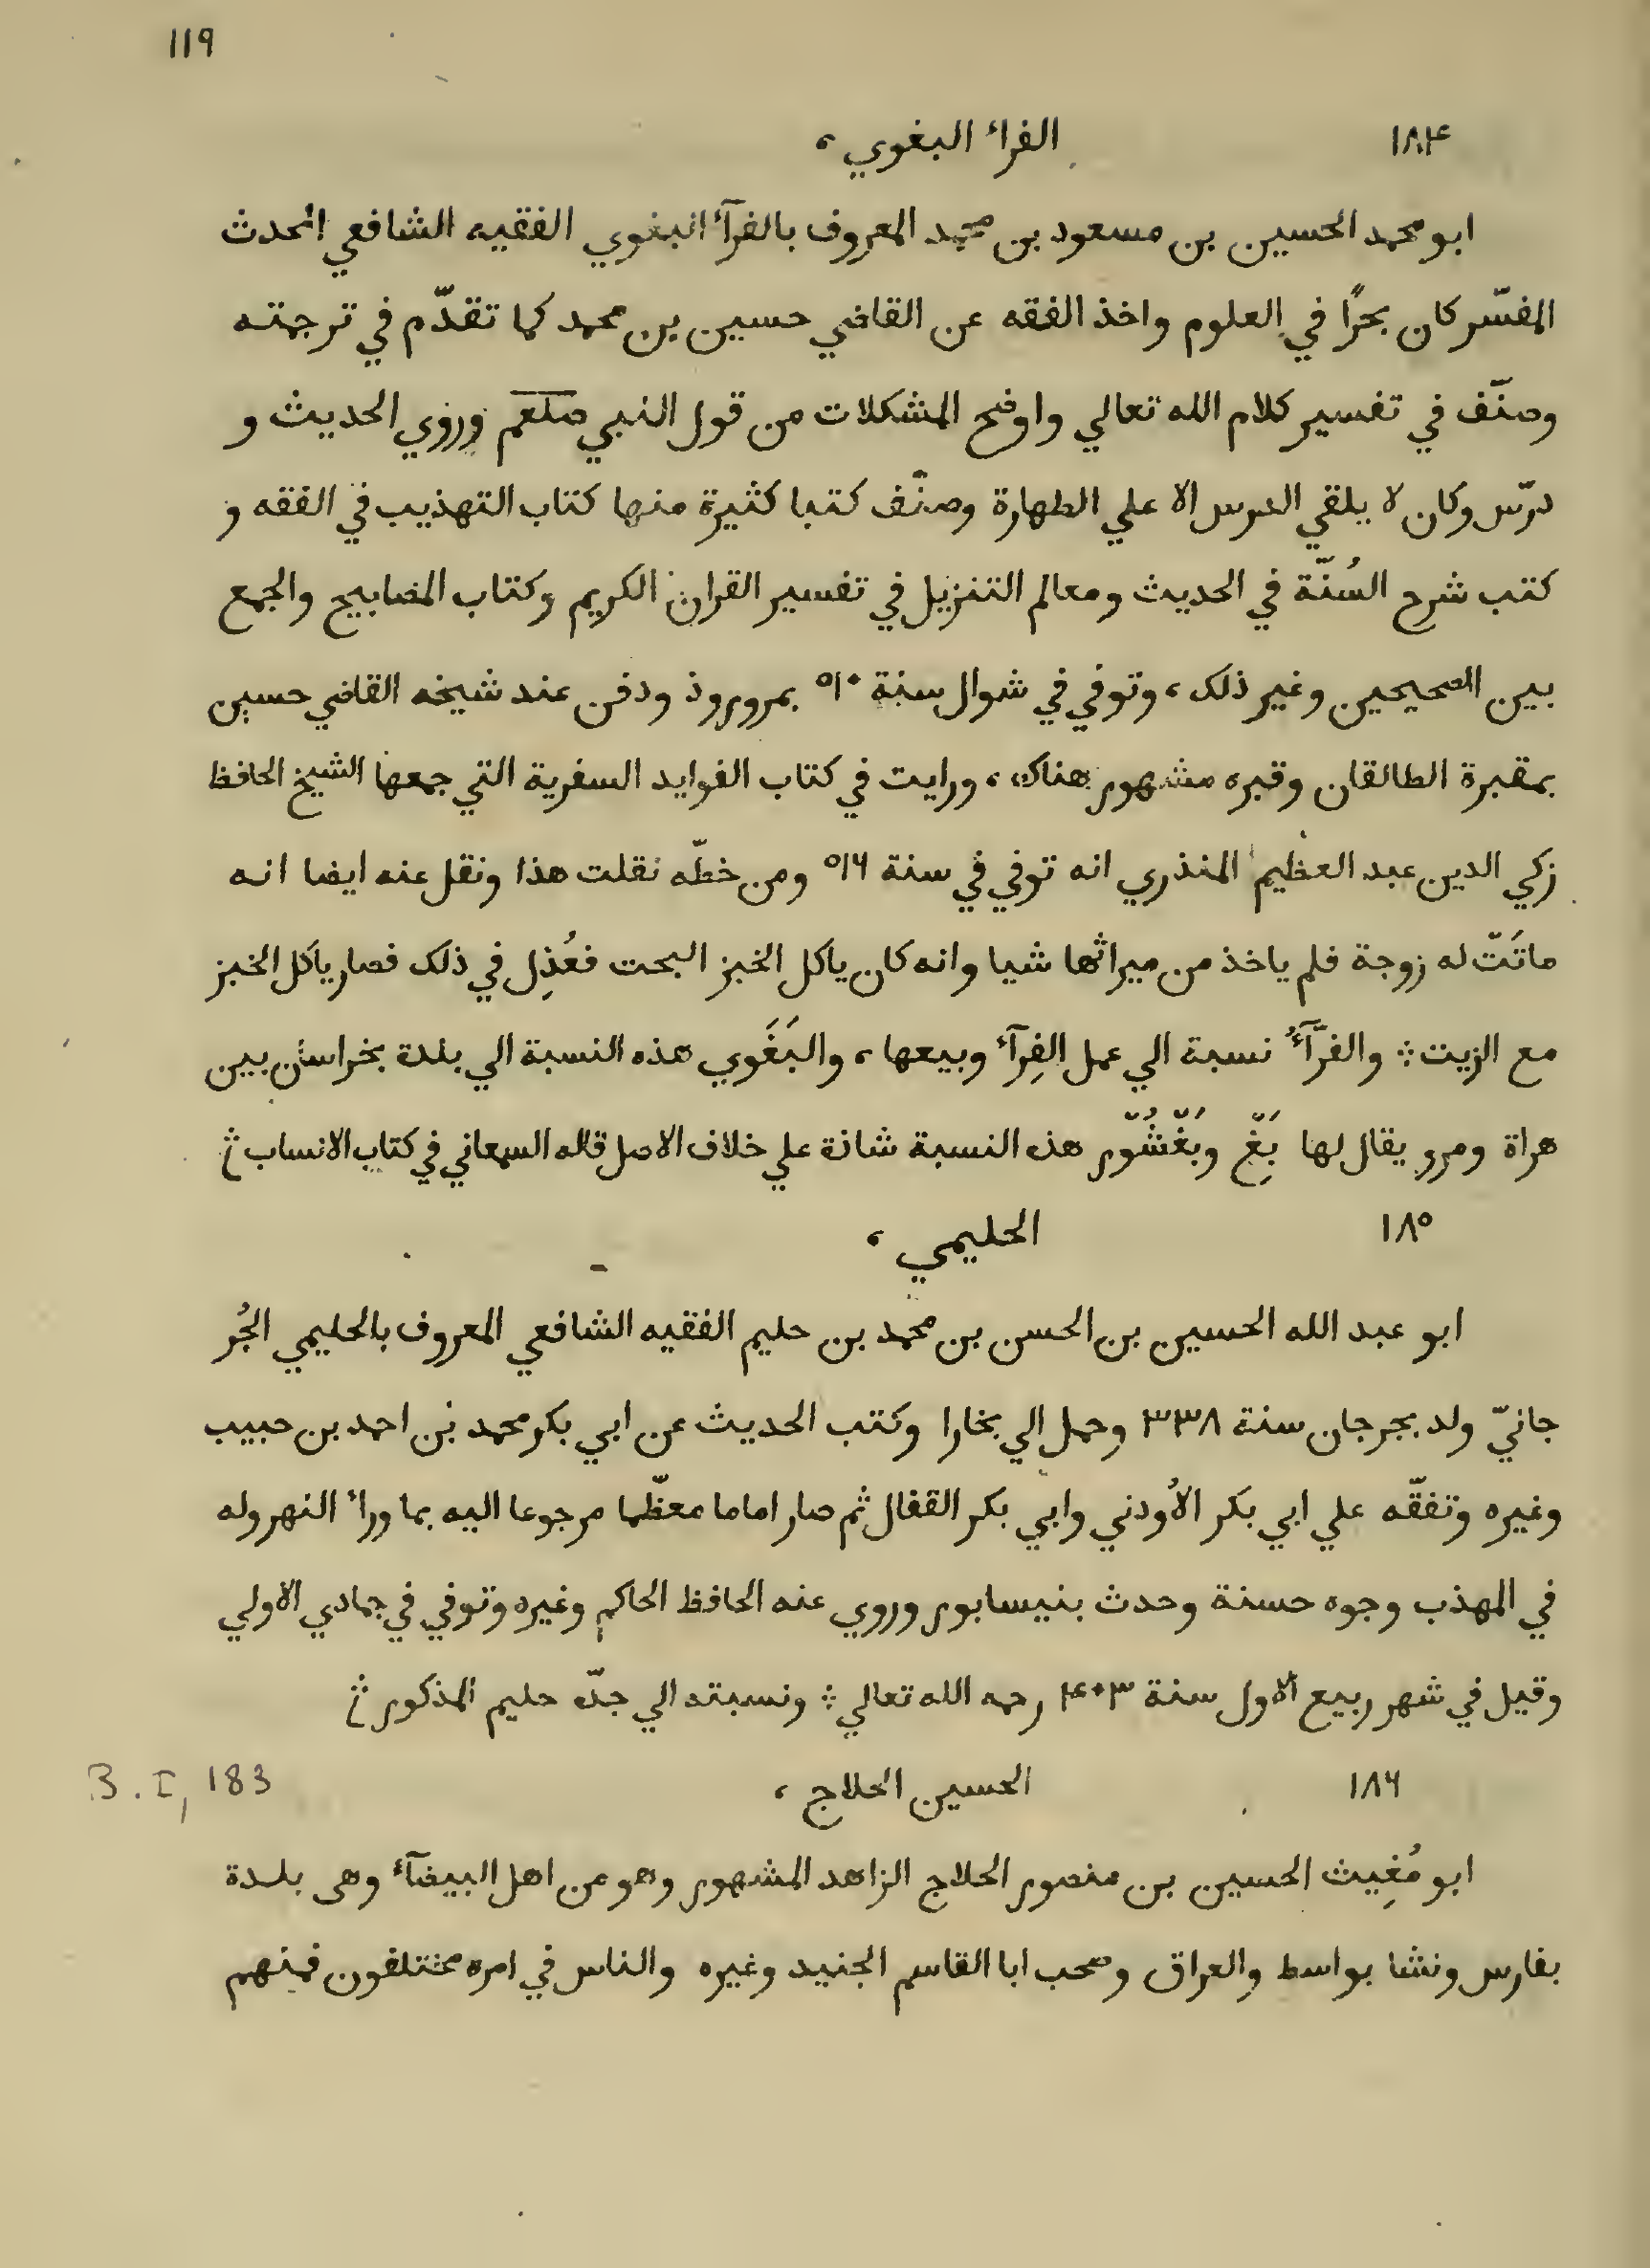 ١١٩
١٨۴ الفراء البغوي ،
ابو محمد الحسين بن مسعود بن محمد المعروف بالفرآء البغوي الفقيه الشافعي المحدث
المفسّر كان بحرًا في العلوم واخذ الفقه عن القاضي حسين بن محمد كما تقدّم في ترجمته
وصنّف في تفسير كلام الله تعالي واوضح المشكلات من قول النبي صلعم وروي الحديث و
درّس وكان لا يلقي الدرس الا علي الطهارة وصنّف كتبا كثيرة منها كتاب التهذيب في الفقه و
كتب شرح السُنّة في الحديث ومعالم التنزيل في تفسير القران الكريم وكتاب المصابيح والجمع
بين الصحيحين وغير ذلك ، وتوفي في شوال سنة ٥١٠ بمروروذ ودفن عند شيخه القاضي حسين
بمقبرة الطالقان وقبره مشهور هناك ، ورايت في كتاب الفوايد السفرية التي جمعها الشيخ الحافظ
زكي الدين عبد العظيم المنذري انه توفي في سنة ٥١٦ ومن خطّه نقلت هذا ونقل عنه ايضا انه
ماتَتّ له زوجة فلم ياخذ من ميراثها شيا وانه كان ياكل الخبز البحت فعُذِل في ذلك فصار ياكل الخبز
مع الزيت ⁘ والفَرّآءُ نسبة الي عمل الفِرآء وبيعها ، والبَغَوي هذه النسبة الي بلدة بخراسان بين
هراة ومرو يقال لها بَغّ وبَغْشُوّر هذه النسبة شاذة علي خلاف الاصل قاله السمعاني في كتاب الانساب ⁘
١٨٥ الحليمي ،
ابو عبد الله الحسين بن الحسن بن محمد بن حليم الفقيه الشافعي المعروف بالحليمي الجُر
جانيّ ولد بجرجان سنة ٣٣٨ وحمل الي بخارا وكتب الحديث عن ابي بكر محمد بن احمد بن حبيب
وغيره وتفقّه علي ابي بكر الأودني وابي بكر القفال ثم صار اماما معظّما مرجوعا اليه بما وراء النهر وله
في المهذب وجوه حسنة وحدث بنيسابور وروي عنه الحافظ الحاكم وغيره وتوفي في جمادي الاولي
وقيل في شهر ربيع الاول سنة ۴٠٣ رحمه الله تعالي ⁘ ونسبته الي جدّه حليم المذكور ⁘
١٨٦ الحسين الحلاج ،
B. I, 183
ابو مُغِيث الحسين بن منصور الحلاج الزاهد المشهور وهو من اهل البيضآء وهي بلدة
بفارس ونشا بواسط والعراق وصحب ابا القاسم الجنيد وغيره والناس في امره مختلفون فمنهم